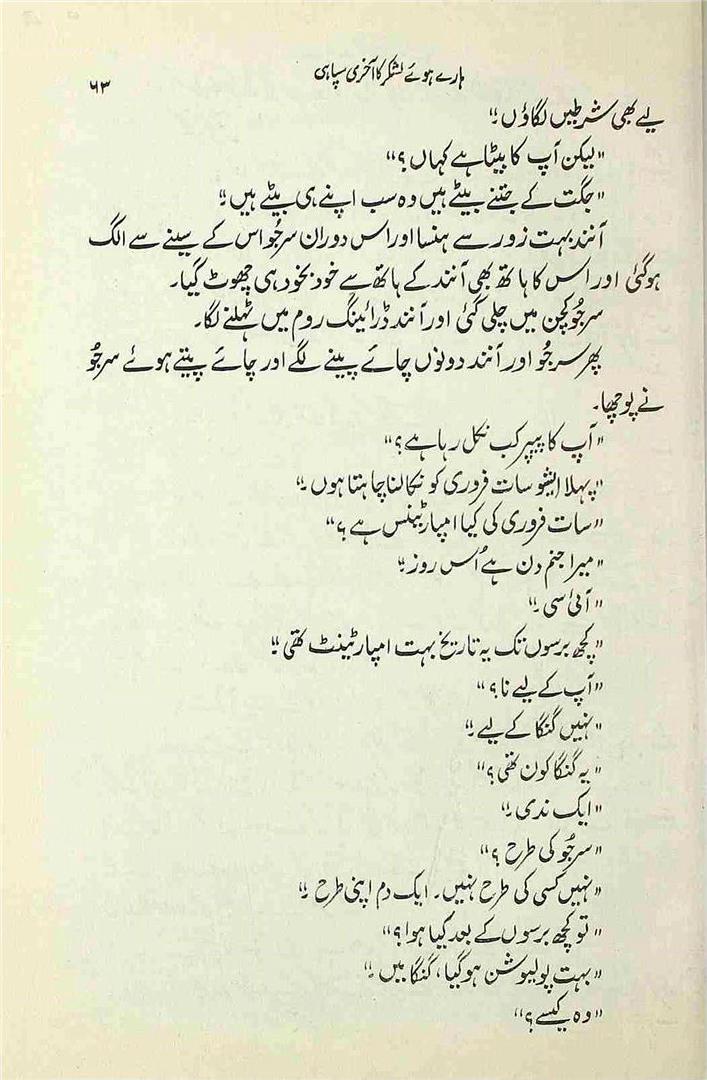 ہارے ہوئے لشکر کا آخری سپاہی
۶۳
لیے بھی شرطیں لگاؤں۔"
"لیکن آپ کا بیٹا ہے کہاں؟"
"جگت کے جتنے بیٹے ہیں وہ سب اپنے ہی بیٹے ہیں۔"
آنند بہت زور سے ہنسا اور اس دوران سرجُو اس کے سینے سے الگ
ہوگئی اور اس کا ہاتھ بھی آنند کے ہاتھ سے خود بخود ہی چھوٹ گیا۔
سرجُو کچن میں چلی گئی اور آنند ڈرائینگ روم میں ٹہلنے لگا۔
پھر سرجُو اور آنند دونوں چائے پینے لگے اور چائے پیتے ہوئے سرجُو
نے پوچھا۔
"آپ کا پیپر کب نکل رہا ہے؟"
"پہلا ایشو سات فروری کو نکالنا چاہتا ہوں۔"
"سات فروری کی کیا امپارٹینس ہے؟"
"میرا جنم دن ہے اُس روز۔"
"آئی سی۔"
"کچھ برسوں تک یہ تاریخ بہت امپارٹینٹ تھی۔"
"آپ کے لیے نا؟"
"نہیں گنگا کے لیے۔"
"یہ گنگا کون تھی؟"
"ایک ندی۔"
"سرجُو کی طرح؟"
"نہیں کسی کی طرح نہیں۔ ایک دم اپنی طرح۔"
"تو کچھ برسوں کے بعد کیا ہوا؟"
"بہت پولیوشن ہوگیا، گنگا میں۔"
"وہ کیسے؟"